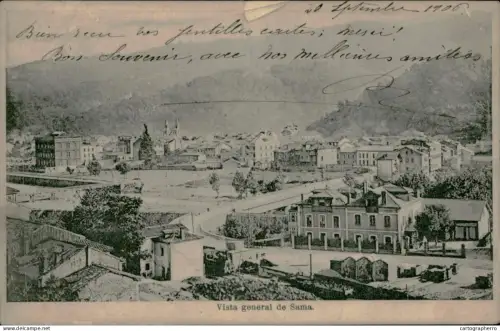 20 Septembre 1906
Bien reçu vos gentilles cartes, merci!
Bon Souvenir, avec nos meilleures amitiés
Vista general de Sama.
www.cartographero.com